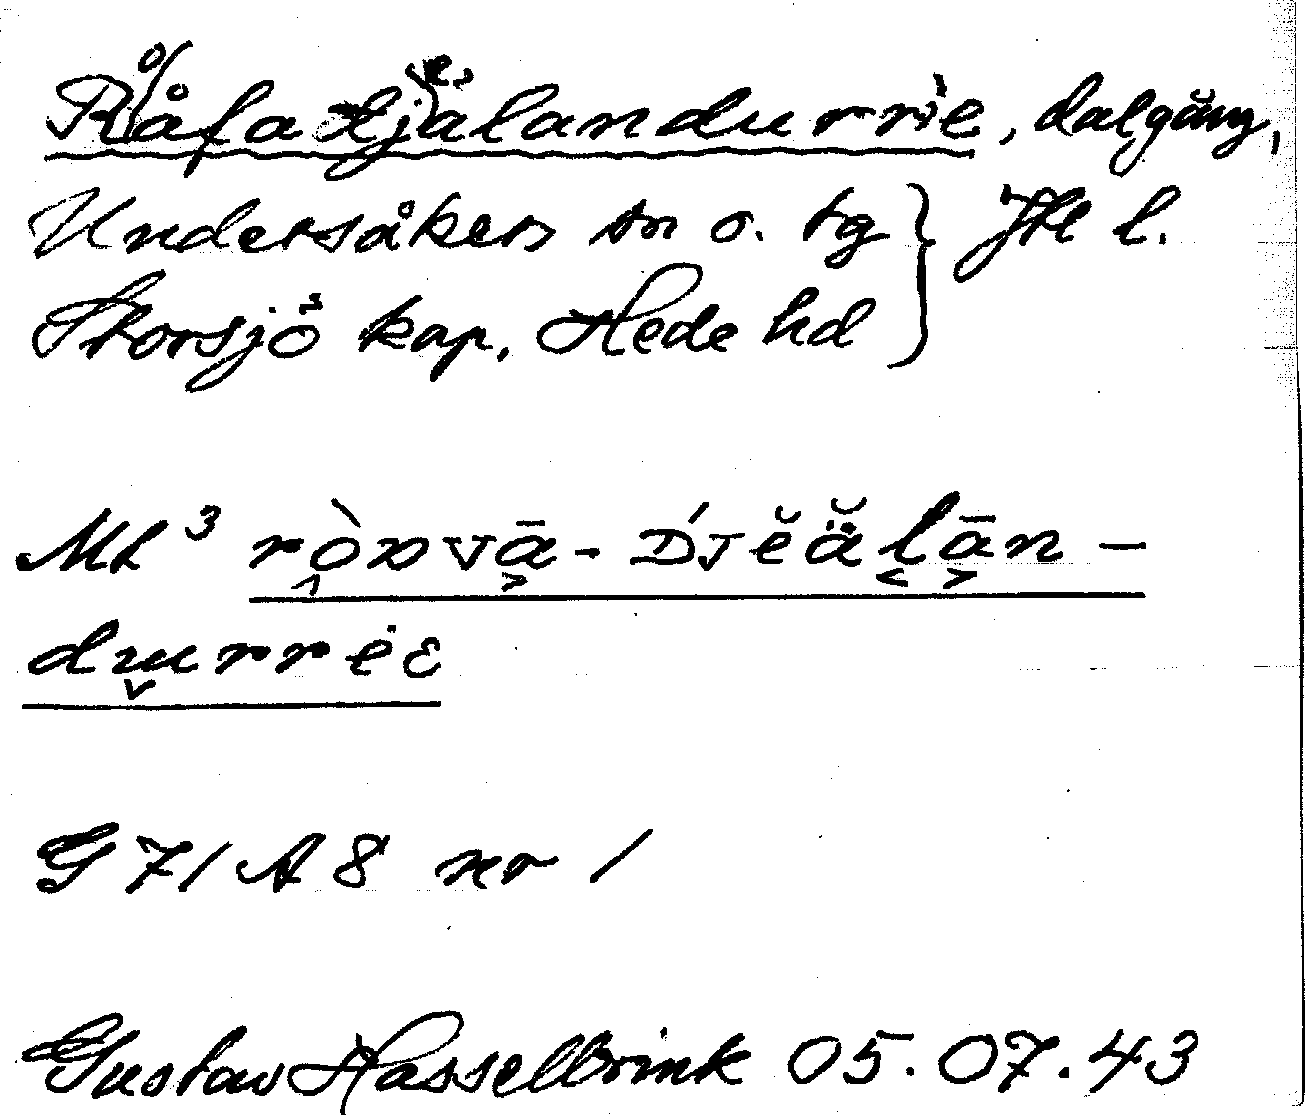 Råfadjälandurrie, dalgång,
Undersåkers sn o. tg } Jtl l.
Storsjö kap, Hede hd
Mt³ ròɷvā- D́ᴊĕä̆lān-
durrėɛ
G 71 A 8 nr 1
Gustav Hasselbrink 05.07.43